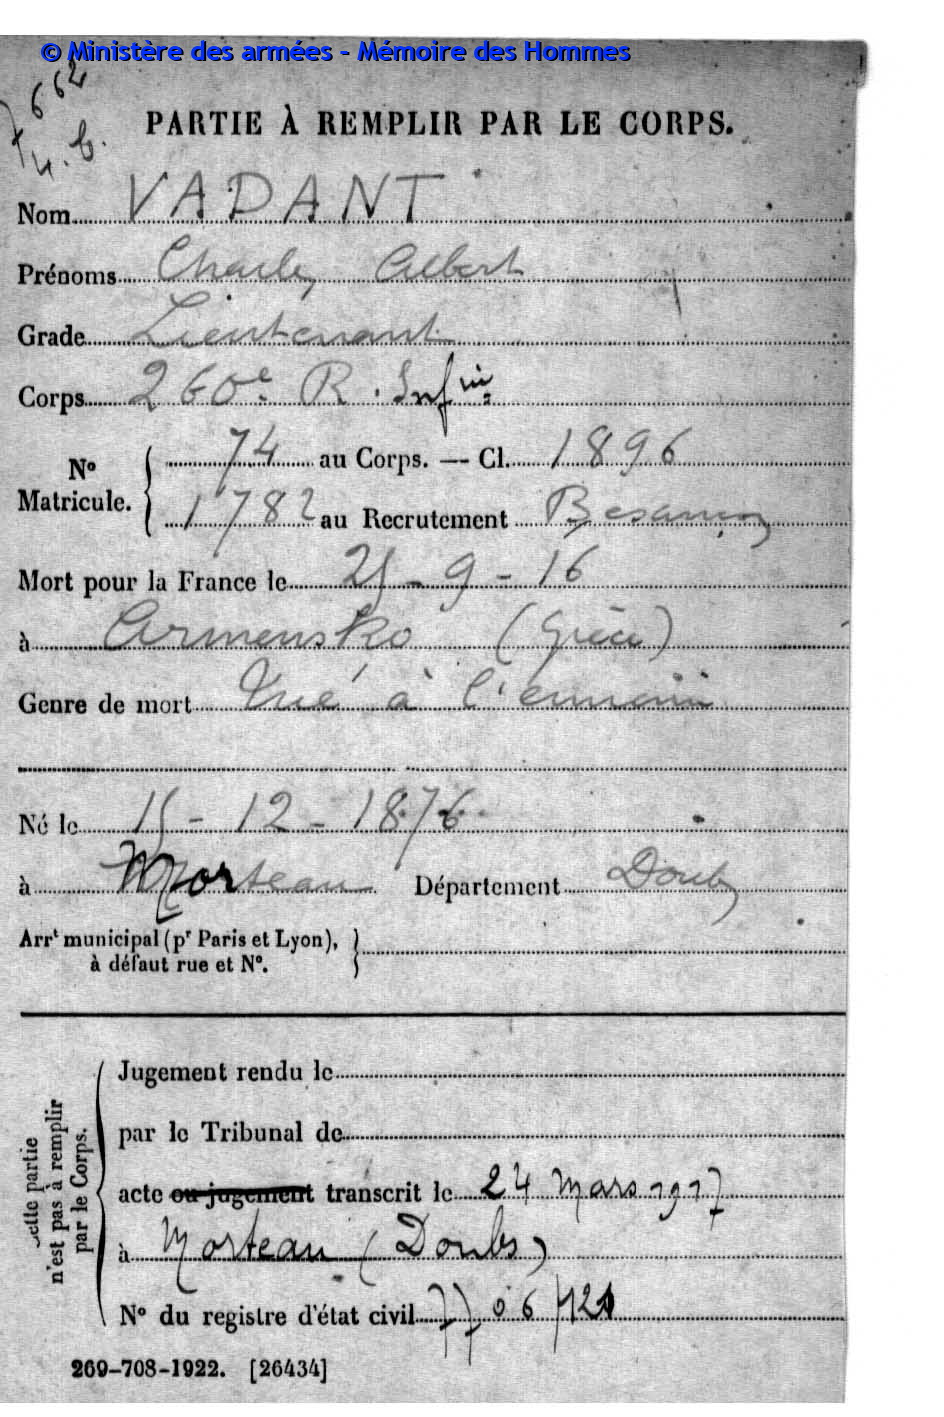 © Ministère des armées - Mémoire des Hommes
662
4.b.
PARTIE À REMPLIR PAR LE CORPS.
Nom VADANT
Prénoms Charles Albert
Grade Lieutenant
Corps 260e R. Infrie
No Matricule. { 74 au Corps. — Cl. 1896
1782 au Recrutement Besançon
Mort pour la France le 25-9-16
à Armensko (Grèce)
Genre de mort Tué à l'ennemi
Né le 15-12-1876
à Morteau Département Doubs
Arrt municipal (pr Paris et Lyon),
à défaut rue et No.
Cette partie n'est pas à remplir par le Corps.
Jugement rendu le
par le Tribunal de
acte ou jugement transcrit le 24 Mars 1917
à Morteau (Doubs)
No du registre d'état civil
269-708-1922. [26434]